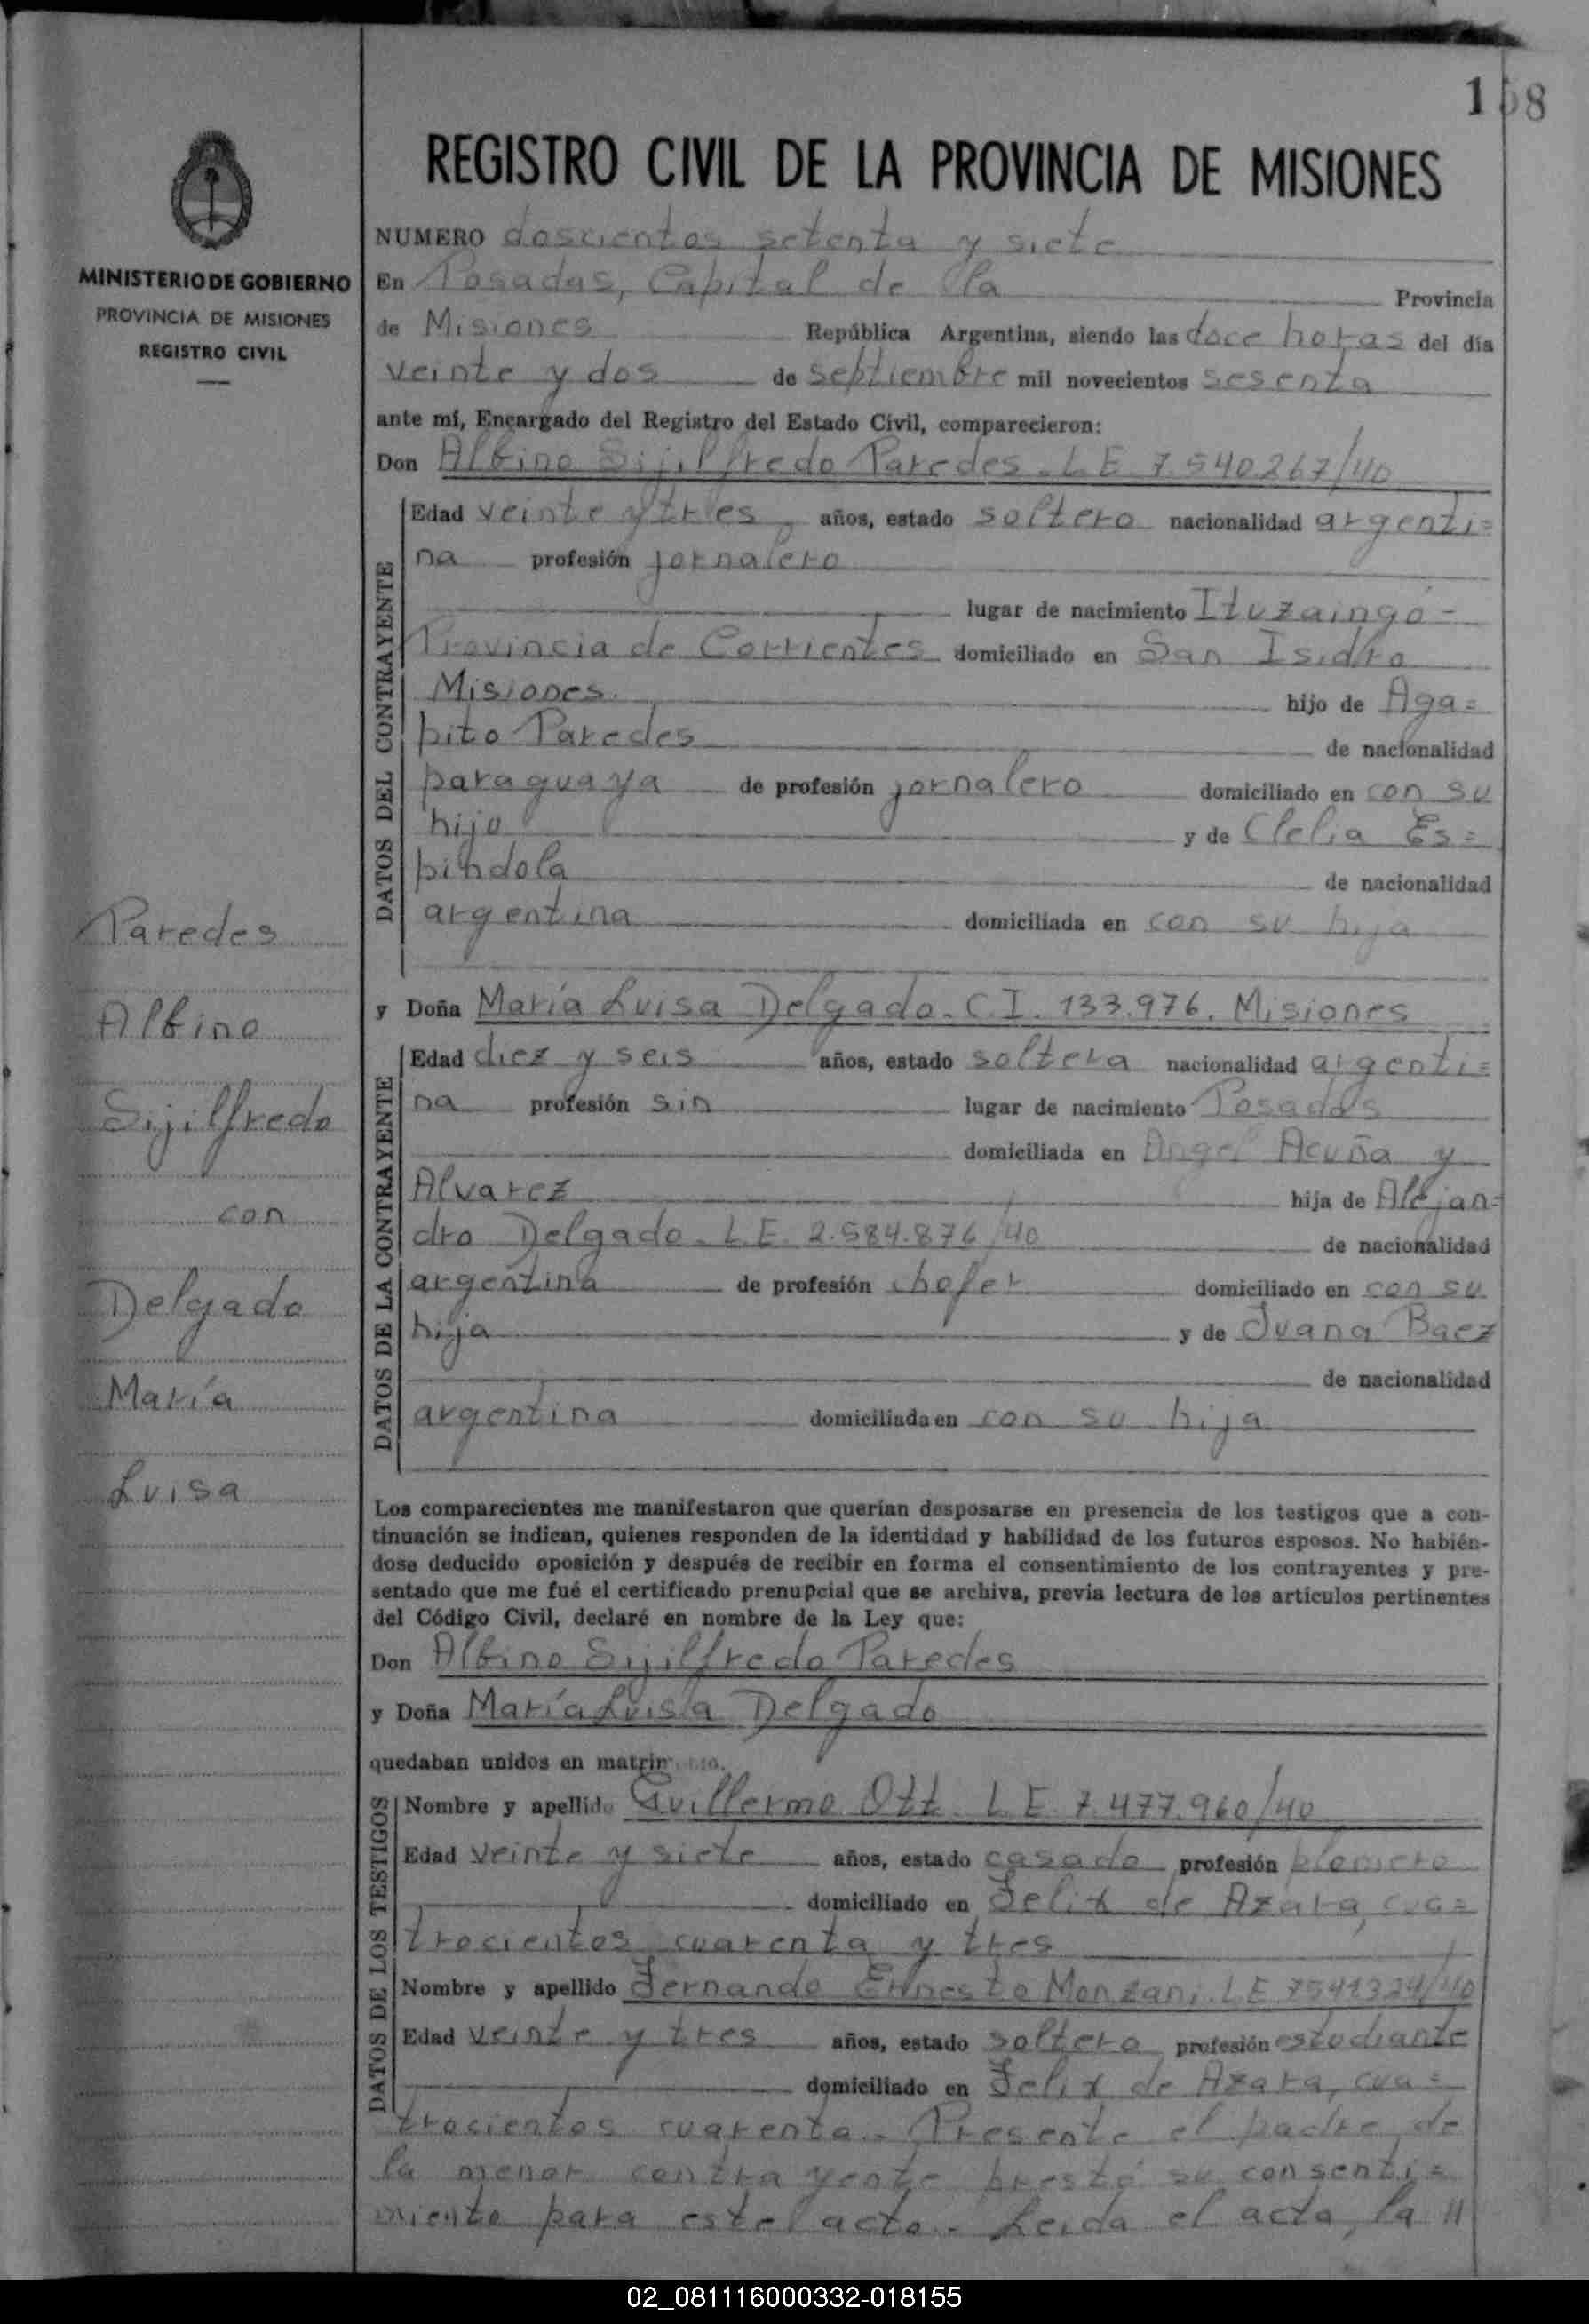 168
REGISTRO CIVIL DE LA PROVINCIA DE MISIONES
MINISTERIO DE GOBIERNO
PROVINCIA DE MISIONES
REGISTRO CIVIL
NUMERO doscientos setenta y siete
En Posadas, Capital de la Provincia
de Misiones República Argentina, siendo las doce horas del día
veinte y dos de septiembre mil novecientos sesenta
ante mí, Encargado del Registro del Estado Civil, comparecieron:
Don Albino Sijilfredo Paredes. L E 7.540.267/40
DATOS DEL CONTRAYENTE
Edad veinte y tres años, estado soltero nacionalidad argenti=
na profesión jornalero
lugar de nacimiento Ituzaingó -
Provincia de Corrientes domiciliado en San Isidro
Misiones. hijo de Aga=
pito Paredes de nacionalidad
paraguaya de profesión jornalero domiciliado en con su
hijo y de Clelia Es=
pindola de nacionalidad
argentina domiciliada en con su hija
y Doña María Luisa Delgado. C.I. 133.976. Misiones
DATOS DE LA CONTRAYENTE
Edad diez y seis años, estado soltera nacionalidad argenti=
na profesión sin lugar de nacimiento Posadas
domiciliada en Angel Acuña y
Alvarez hija de Alejan=
dro Delgado. L.E. 2.584.876/40 de nacionalidad
argentina de profesión chofer domiciliado en con su
hija y de Juana Baez
de nacionalidad
argentina domiciliada en con su hija
Paredes
Albino
Sijilfredo
con
Delgado
María
Luisa
Los comparecientes me manifestaron que querían desposarse en presencia de los testigos que a con-
tinuación se indican, quienes responden de la identidad y habilidad de los futuros esposos. No habién-
dose deducido oposición y después de recibir en forma el consentimiento de los contrayentes y pre-
sentado que me fué el certificado prenupcial que se archiva, previa lectura de los artículos pertinentes
del Código Civil, declaré en nombre de la Ley que:
Don Albino Sijilfredo Paredes
y Doña María Luisa Delgado
quedaban unidos en matrimonio.
DATOS DE LOS TESTIGOS
Nombre y apellido Guillermo Ott L E 7.477.960/40
Edad veinte y siete años, estado casado profesión plomero
domiciliado en Felix de Azara, cua=
trocientos cuarenta y tres
Nombre y apellido Fernando Ernesto Monzani. L E 7541324/40
Edad veinte y tres años, estado soltero profesión estudiante
domiciliado en Felix de Azara, cua=
trocientos cuarenta. Presente el padre de
la menor contrayente prestó su consenti=
miento para este acto. Leida el acta, la //
02_081116000332-018155